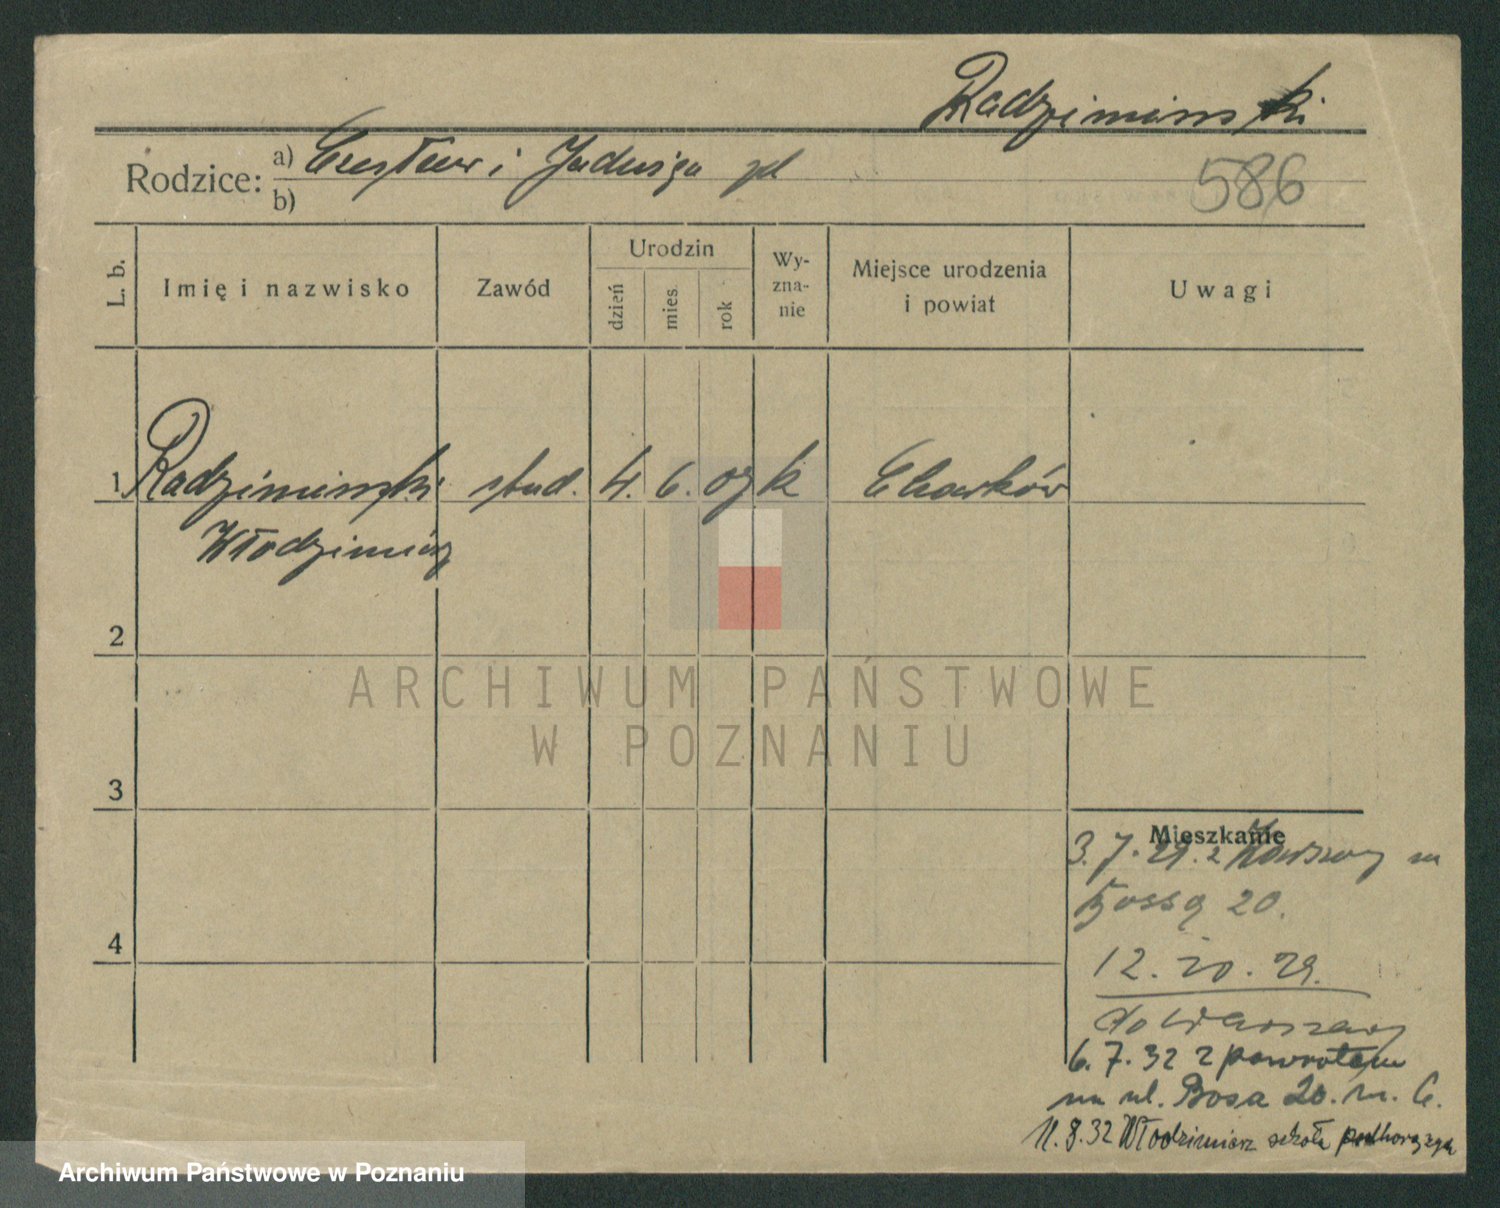 Radzimiński
Rodzice: a) Czesław i Jadwiga
b)
586
L. b.
Imię i nazwisko
Zawód
Urodzin
dzień
mies.
rok
Wy-
zna-
nie
Miejsce urodzenia
i powiat
Uwagi
1 Radzimiński stud. 4. 6. 09 k Charków
Włodzimierz
2
3
4
ARCHIWUM PAŃSTWOWE
W POZNANIU
Mieszkanie
3. 7. 29. z Warszawy na
Bossą 20.
12. 10. 29.
do Warszawy
6. 7. 32 z powrotem
na ul. Bosa 20. m. 6.
11. 8. 32 Włodzimierz szkoła podhorążych
Archiwum Państwowe w Poznaniu